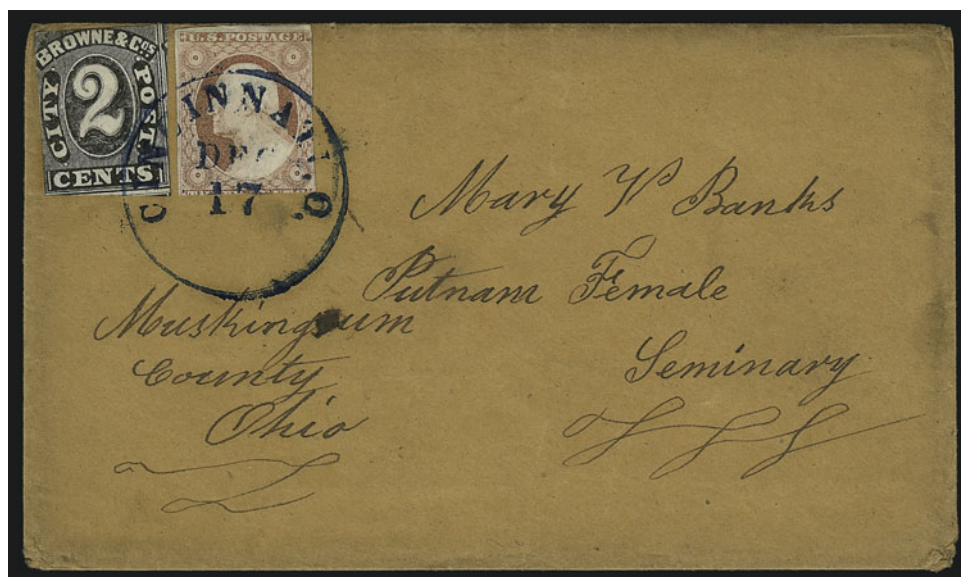 BROWNE & Co's
CITY POST
2
CENTS
U.S. POSTAGE
CINCINNATI. O.
DEC
17
Mary P Banks
Putnam Female
Seminary
Muskingum
County
Ohio